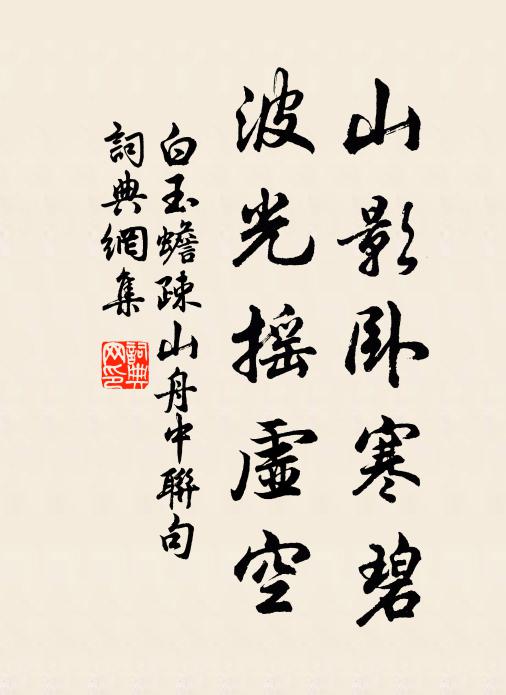 山影卧寒碧
波光摇虛空
白玉蟾疎山舟中聯句
詞典網集
詞典網印